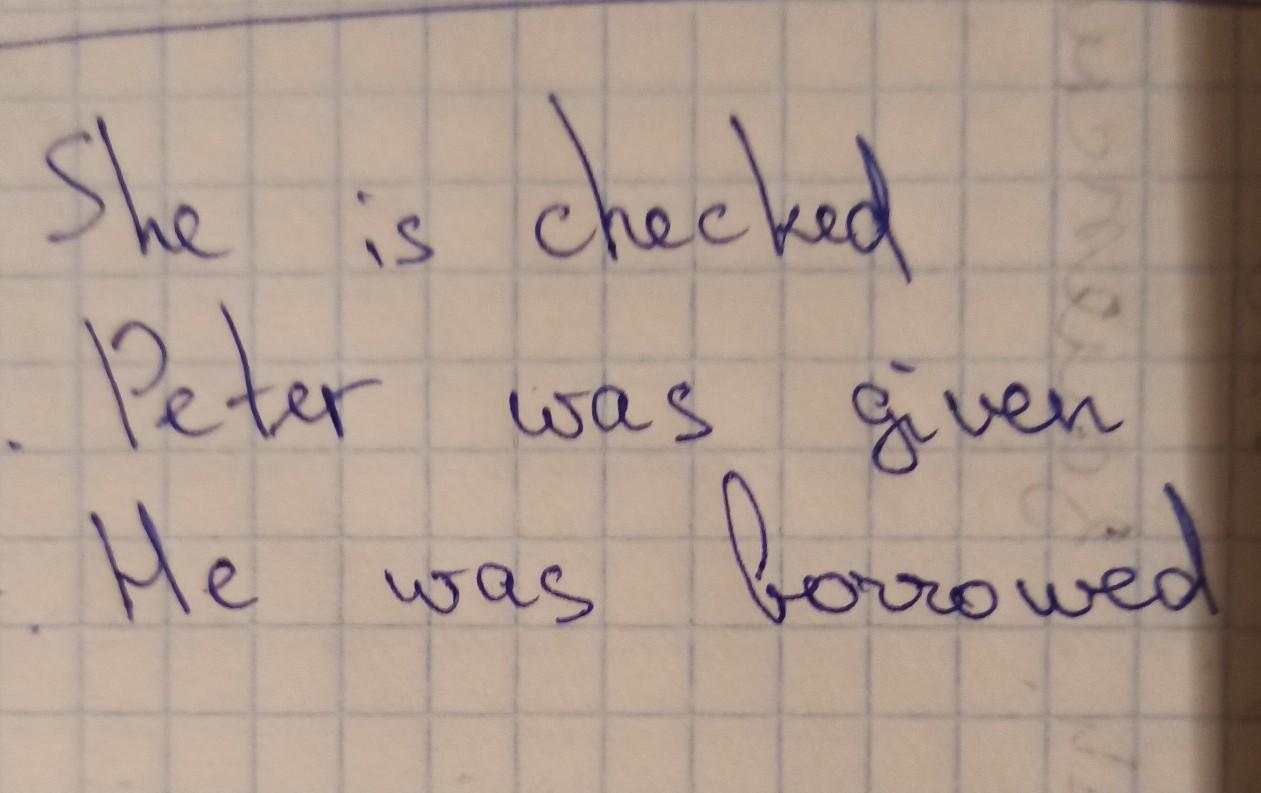 She is checked
. Peter was given
. He was borrowed